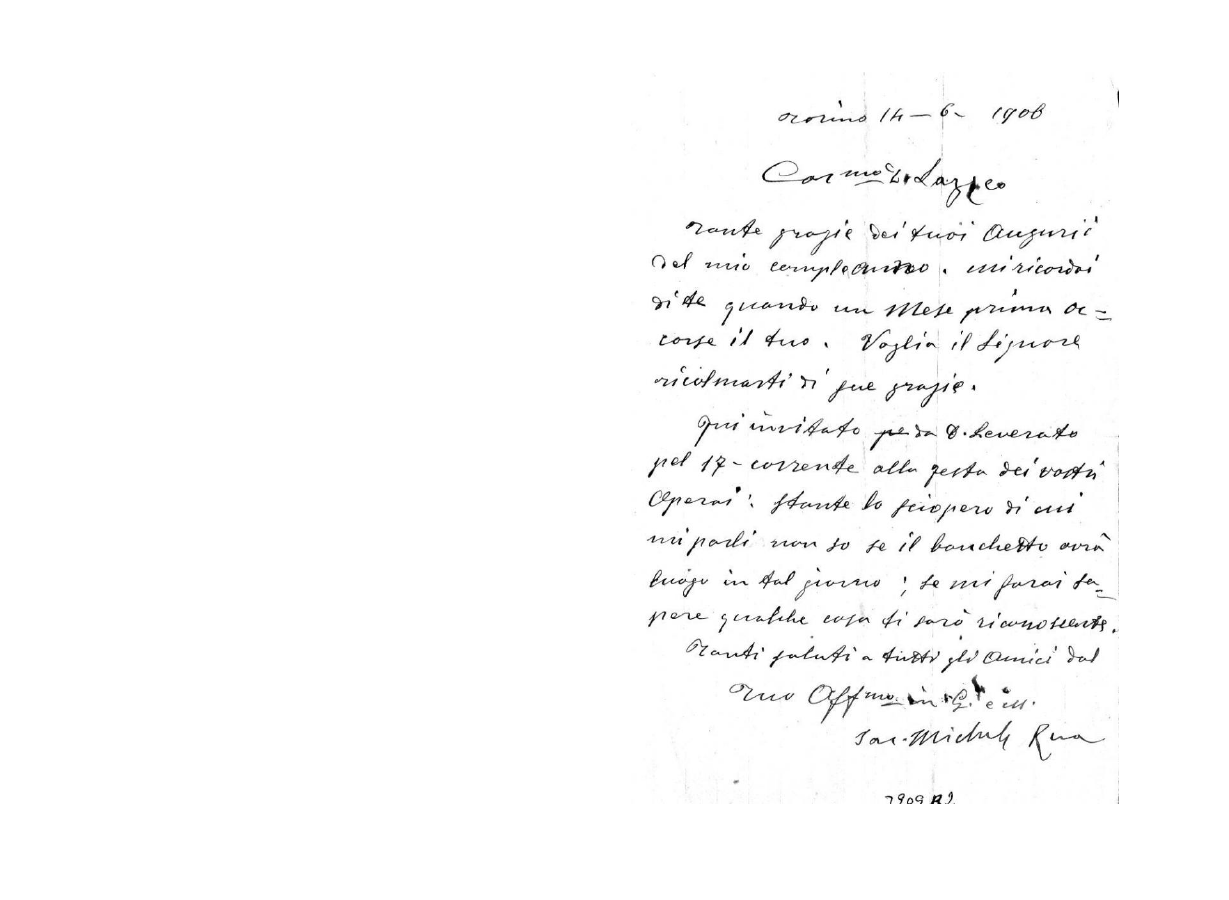 Torino 14-6- 1906
Car.mo D. Lazzeo
Tante grazie dei tuoi Augurii
del mio compleanno. mi ricordai
di te quando un Mese prima oc=
corse il tuo. Voglia il Signore
ricolmarti di sue grazie.
Fui invitato da D. Leverato
pel 17- corrente alla festa dei vostri
Operai: stante lo sciopero di cui
mi parli non so se il banchetto avrà
luogo in tal giorno; se mi farai sa-
pere qualche cosa ti sarò riconoscente.
Tanti saluti a tutti gli Amici dal
Tuo Aff.mo in G. e M.
Sac. Michele Rua